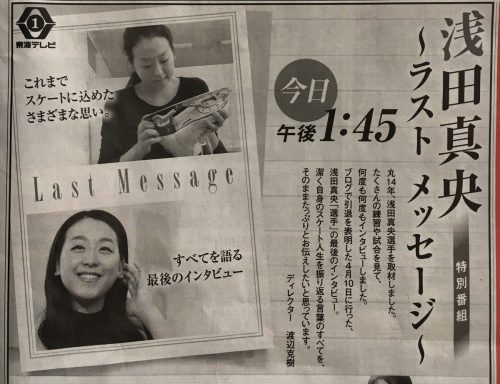 浅田真央
～ラスト メッセージ～
特別番組
今日
午後1:45
1
東海テレビ
これまで
スケートに込めた
さまざまな思い。
Last Message
すべてを語る
最後のインタビュー
丸14年、浅田真央選手を取材しました。
たくさんの練習や試合を見て、
何度も何度もインタビューしました。
ブログで引退を表明した4月10日に行った、
浅田真央「選手」の最後のインタビュー。
潔く自身のスケート人生を振り返る言葉のすべてを、
そのままたっぷりとお伝えしたいと思っています。
ディレクター 渡辺克樹